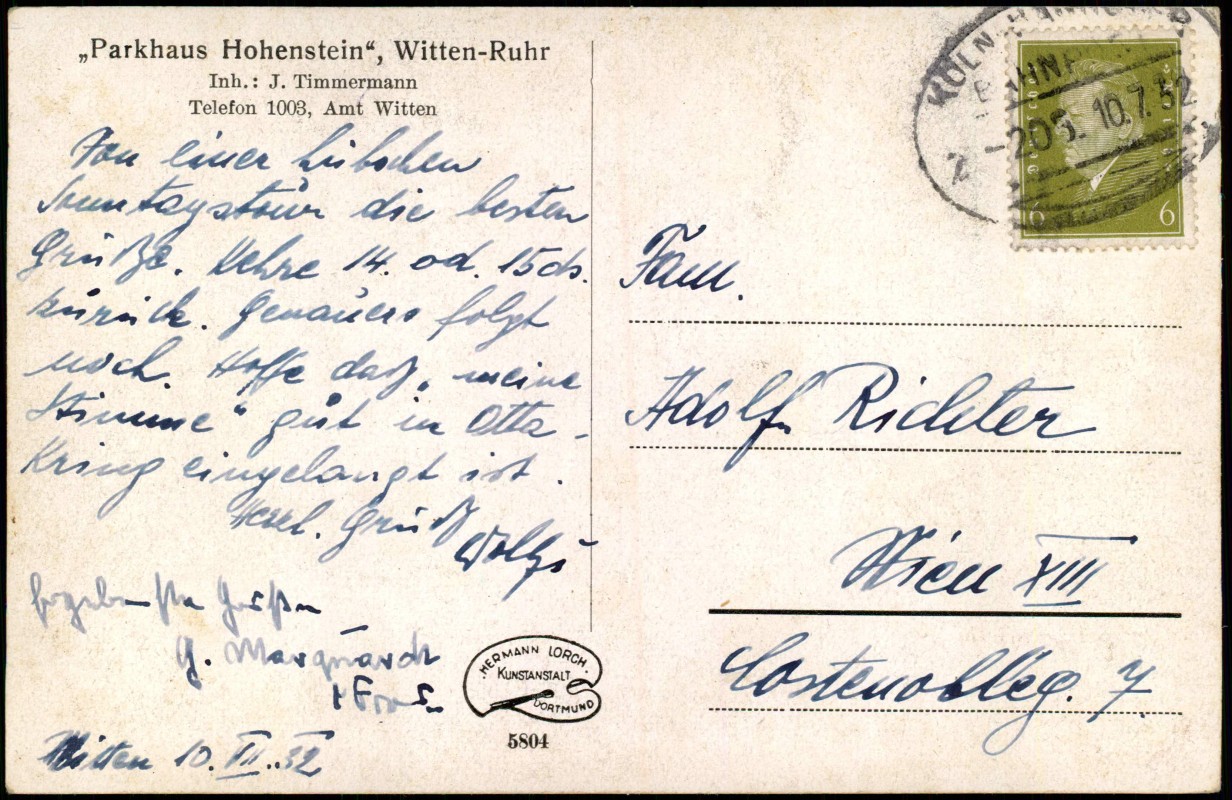 „Parkhaus Hohenstein“, Witten-Ruhr
Inh.: J. Timmermann
Telefon 1003, Amt Witten
Von einer hübschen
Sonntagstour die besten
Grüße. Kehre 14. od. 15 ds.
zurück. Genaueres folgt
noch. Hoffe daß „meine
Stimme“ gut in Otta-
kring eingelangt ist.
Herzl. Grüß
Ergebenste Grüße
G. Marquardt
+ Frau
Witten 10. VII. 32
HERMANN LORCH,
KUNSTANSTALT
DORTMUND
5804
KÖLN-HANNOVER
BAHNPOST
Z -205. 10.7.32
6 6
Fam.
Adolf Richter
Wien XIII
7.